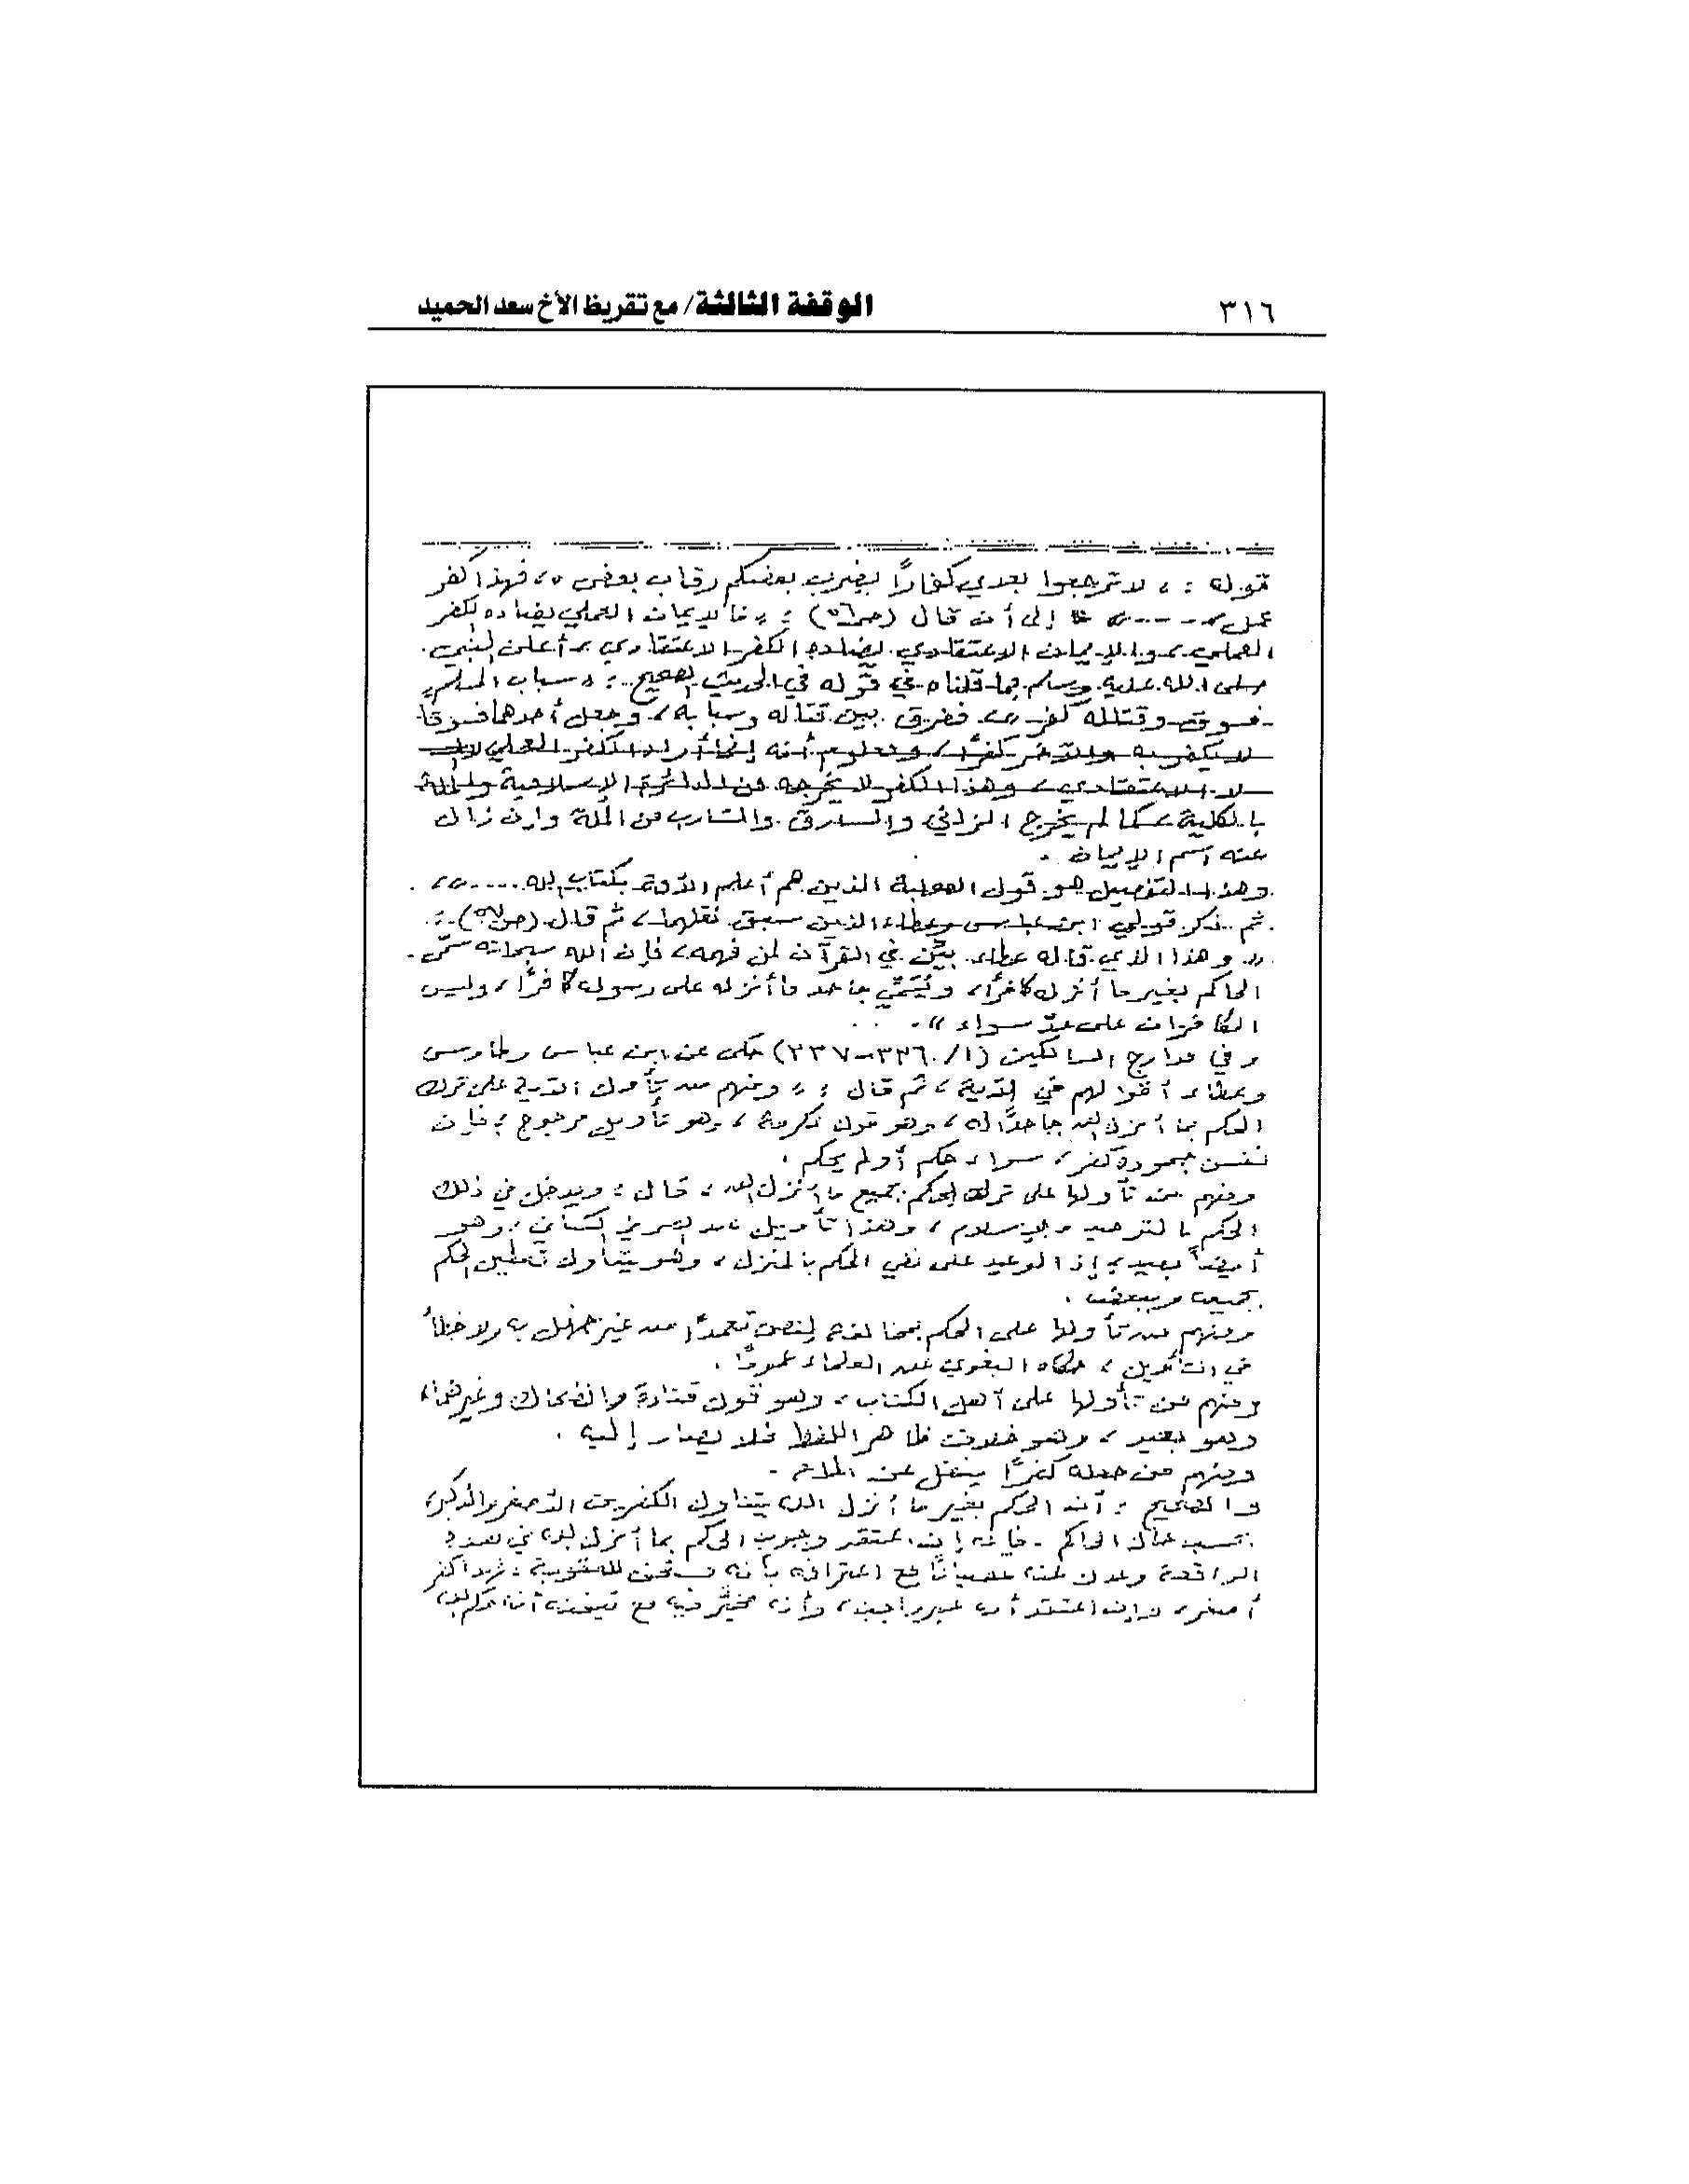 ٣١٦
الوقفة الثالثة/ مع تقريظ الأخ سعد الحميد
قوله : « لا ترجعوا بعدي كفارًا يضرب بعضكم رقاب بعض » ، فهذا كفر
عمل ، ---- » إلى أن قال (ص٥٦) : « فالإيمان العملي يضاده الكفر
العملي ، والإيمان الاعتقادي يضاده الكفر الاعتقادي ، أعلن النبي
صلى الله عليه وسلم بما قلناه في قوله في الحديث الصحيح : « سباب المسلم
فسوق وقتاله كفر » ففرق بين قتاله وسبابه ، وجعل أحدهما فسوقًا
لا يكفر به والآخر كفرًا ، ومعلوم أنه إنما أراد الكفر العملي
لا الاعتقادي ، وهذا الكفر لا يخرجه من الدائرة الإسلامية والملة
بالكلية ، كما لم يخرج الزاني والسارق والشارب من الملة وإن زال
عنه اسم الإيمان .
وهذا التفصيل هو قول الصحابة الذين هم أعلم الأمة بكتاب الله .... » .
ثم ذكر قولي ابن عباس وعطاء الذين سبق نقلهما ، ثم قال :
« وهذا الذي قاله عطاء بيّن في القرآن لمن فهمه ، فإن الله سبحانه سمّى
الحاكم بغير ما أنزل كافرًا ، ويُسَمّي جاحد ما أنزله على رسوله كافرًا ، وليس
الكافران على حدّ سواء » .
وفي مدارج السالكين (١/ ٣٣٦-٣٣٧) حكى عن ابن عباس وطاوس
وعطاء أقوالهم في الآية ، ثم قال : « ومنهم من تأول الآية على ترك
الحكم بما أنزل الله جاحدًا له ، وهو قول عكرمة ، وهو تأويل مرجوح ؛ فإن
نفس جحوده كفر ، سواء حكم أو لم يحكم .
ومنهم من تأولها على ترك الحكم بجميع ما أنزل الله ، قال : ويدخل في ذلك
الحكم بالتوحيد والإسلام ، وهذا تأويل عبد العزيز الكناني ، وهو
أيضًا بعيد ؛ إذ الوعيد على نفي الحكم بالمنزل ، وهو يتناول تعطيل الحكم
بجميعه وببعضه .
ومنهم من تأولها على الحكم بمخالفة النص تعمدًا من غير جهل به ولا خطأ
في التأويل ، حكاه البغوي عن العلماء عمومًا .
ومنهم من تأولها على أهل الكتاب ، وهو قول قتادة والضحاك وغيرهما ،
وهو بعيد ، وهو خلاف ظاهر اللفظ فلا يصار إليه .
ومنهم من جعله كفرًا ينقل عن الملة .
والصحيح : أن الحكم بغير ما أنزل الله يتناول الكفرين الأصغر والأكبر ،
بحسب حال الحاكم ، فإنه إن اعتقد وجوب الحكم بما أنزل الله في هذه
الواقعة وعدل عنه عصيانًا مع اعترافه بأنه مستحق للعقوبة ؛ فهذا كفر
أصغر ، وإن اعتقد أنه غير واجب ، وأنه مخيّر فيه مع تيقنه أنه حكم الله